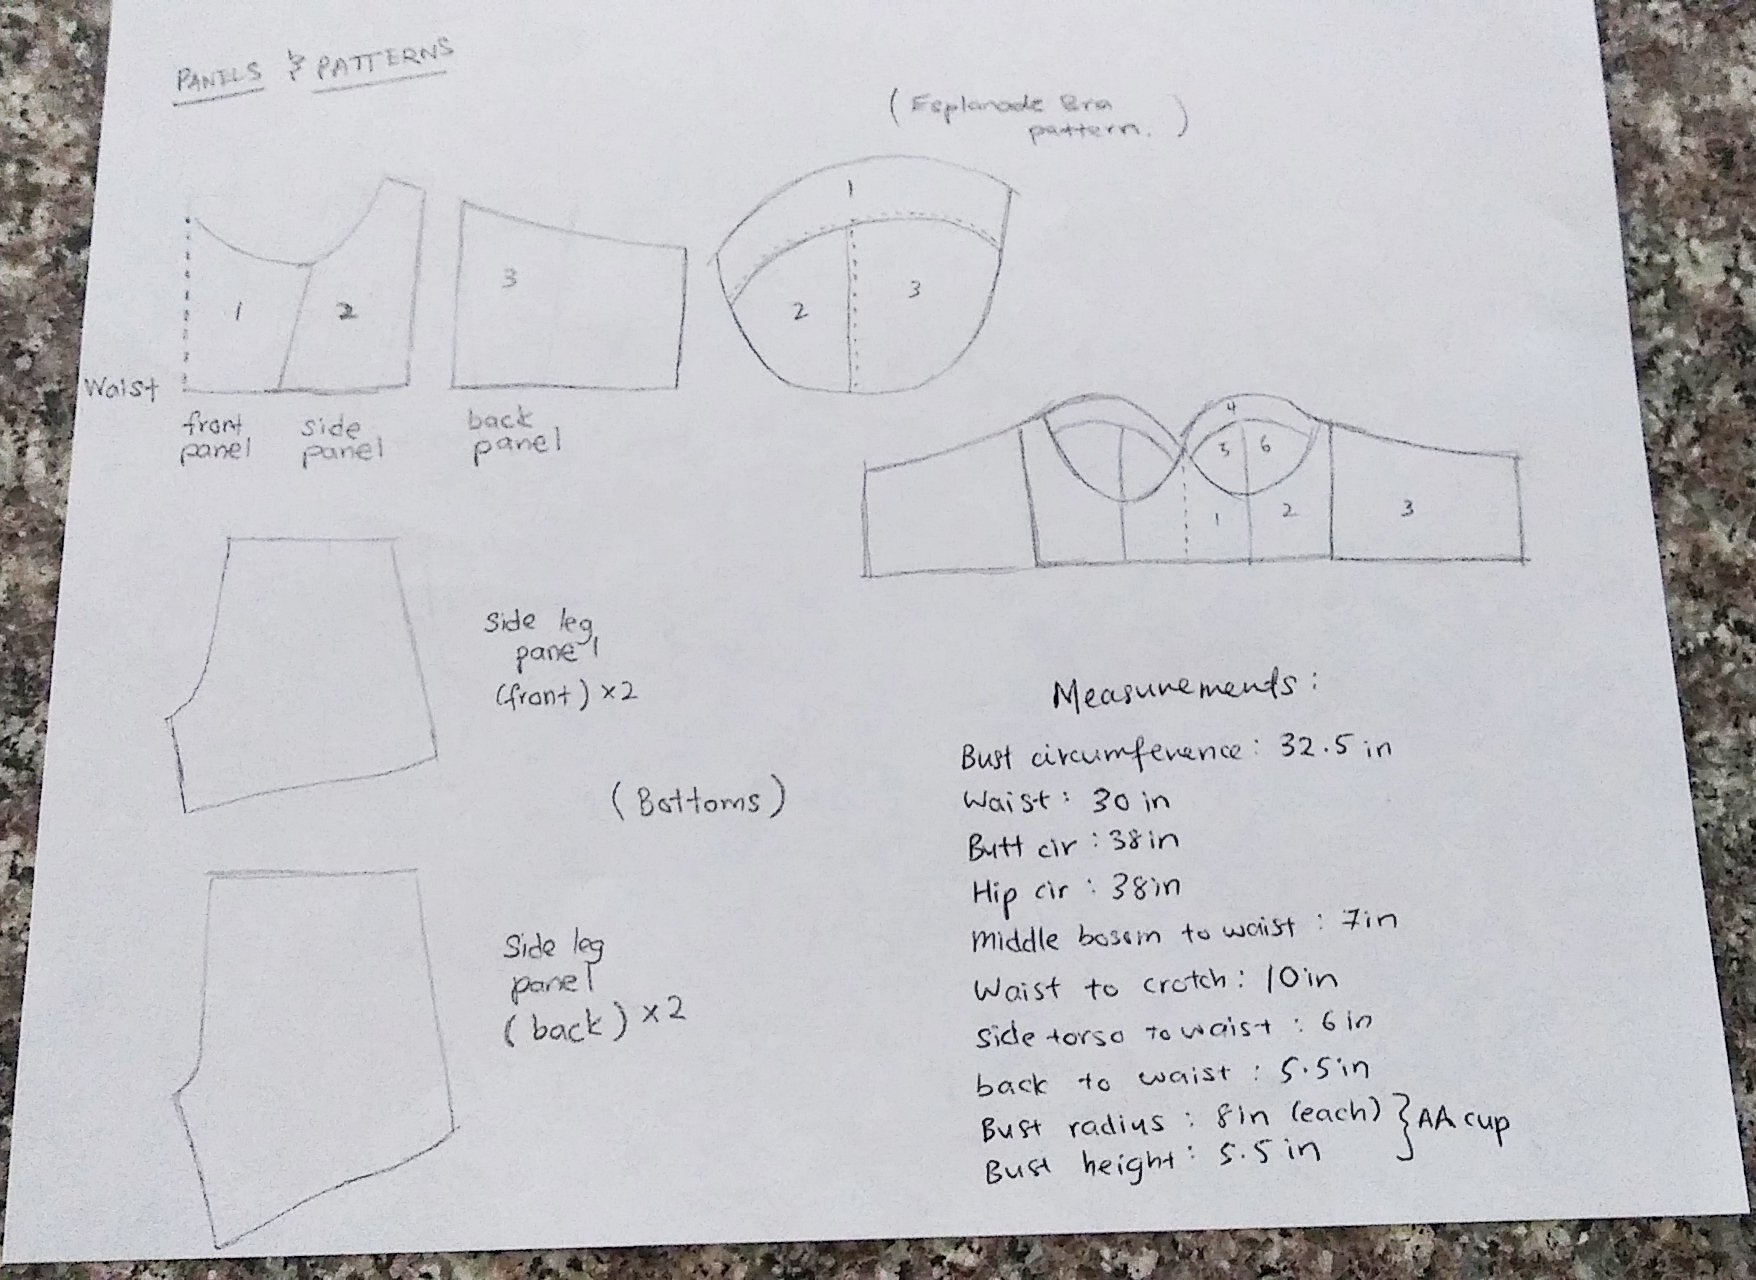 PANELS & PATTERNS
(Esplanade Bra
pattern.)
1
2
3
1
2
3
Waist
front
panel
side
panel
back
panel
4
5
6
1
2
3
Side leg
panel
(front) x2
(Bottoms)
Side leg
panel
(back) x2
Measurements:
Bust circumference: 32.5 in
Waist: 30 in
Butt cir: 38in
Hip cir: 38in
Middle bosom to waist: 7in
Waist to crotch: 10in
Side torso to waist: 6in
back to waist: 5.5in
Bust radius: 8in (each) } AA cup
Bust height: 5.5 in